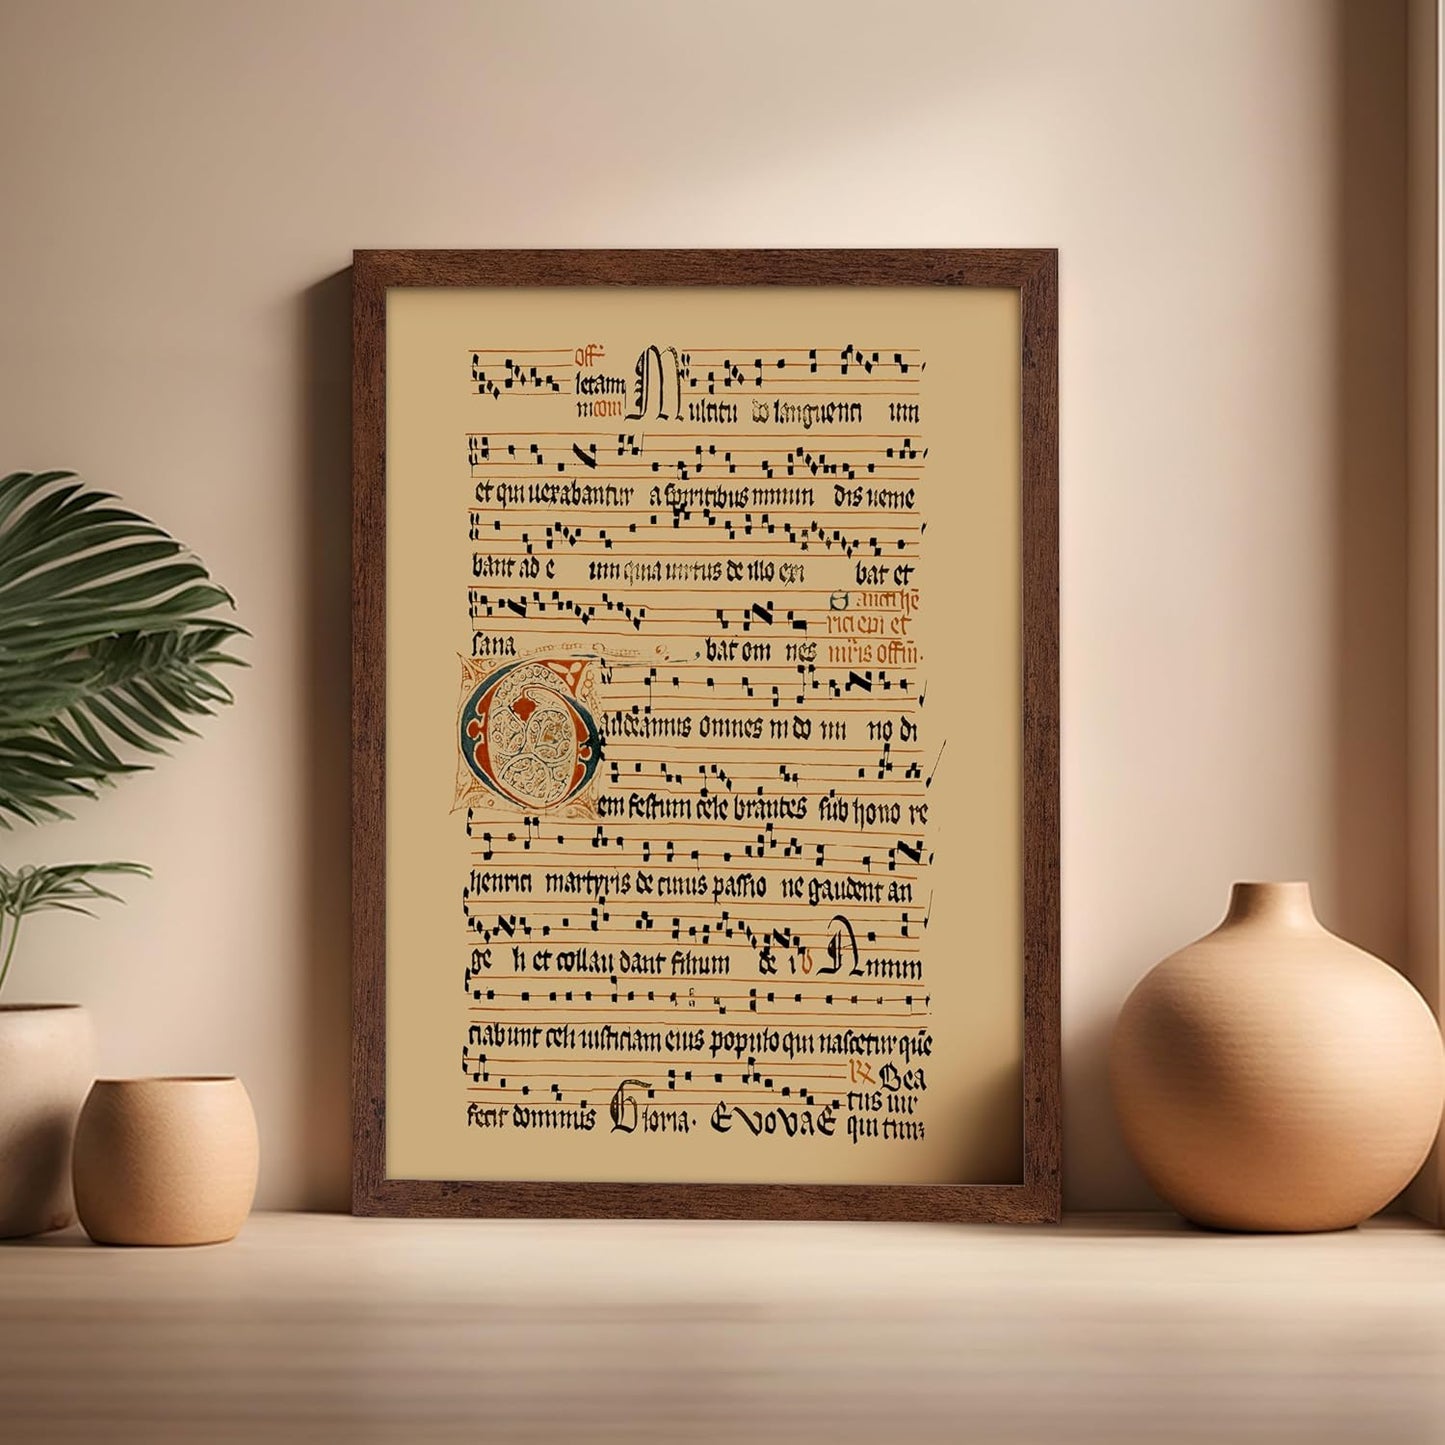 off̄
letamī
mcom Multitu do languenti um
et qui uexabantur a spiritibus inmun dis uenie
bant ad e um quia uirtus de illo exi bat et
Sancti hē
rici epi et
sana bat om nes mr̄is offm̄.
Gaudeamus omnes in do mi no di
em festum cele brantes sub hono re
henrici martyris de cuius passio ne gaudent an
ge li et collau dant filium de i v Annun
ciabunt celi iusticiam eius populo qui nascetur quē
R Bea
fecit dominus Gloria. Evovae tus uir
qui tim;